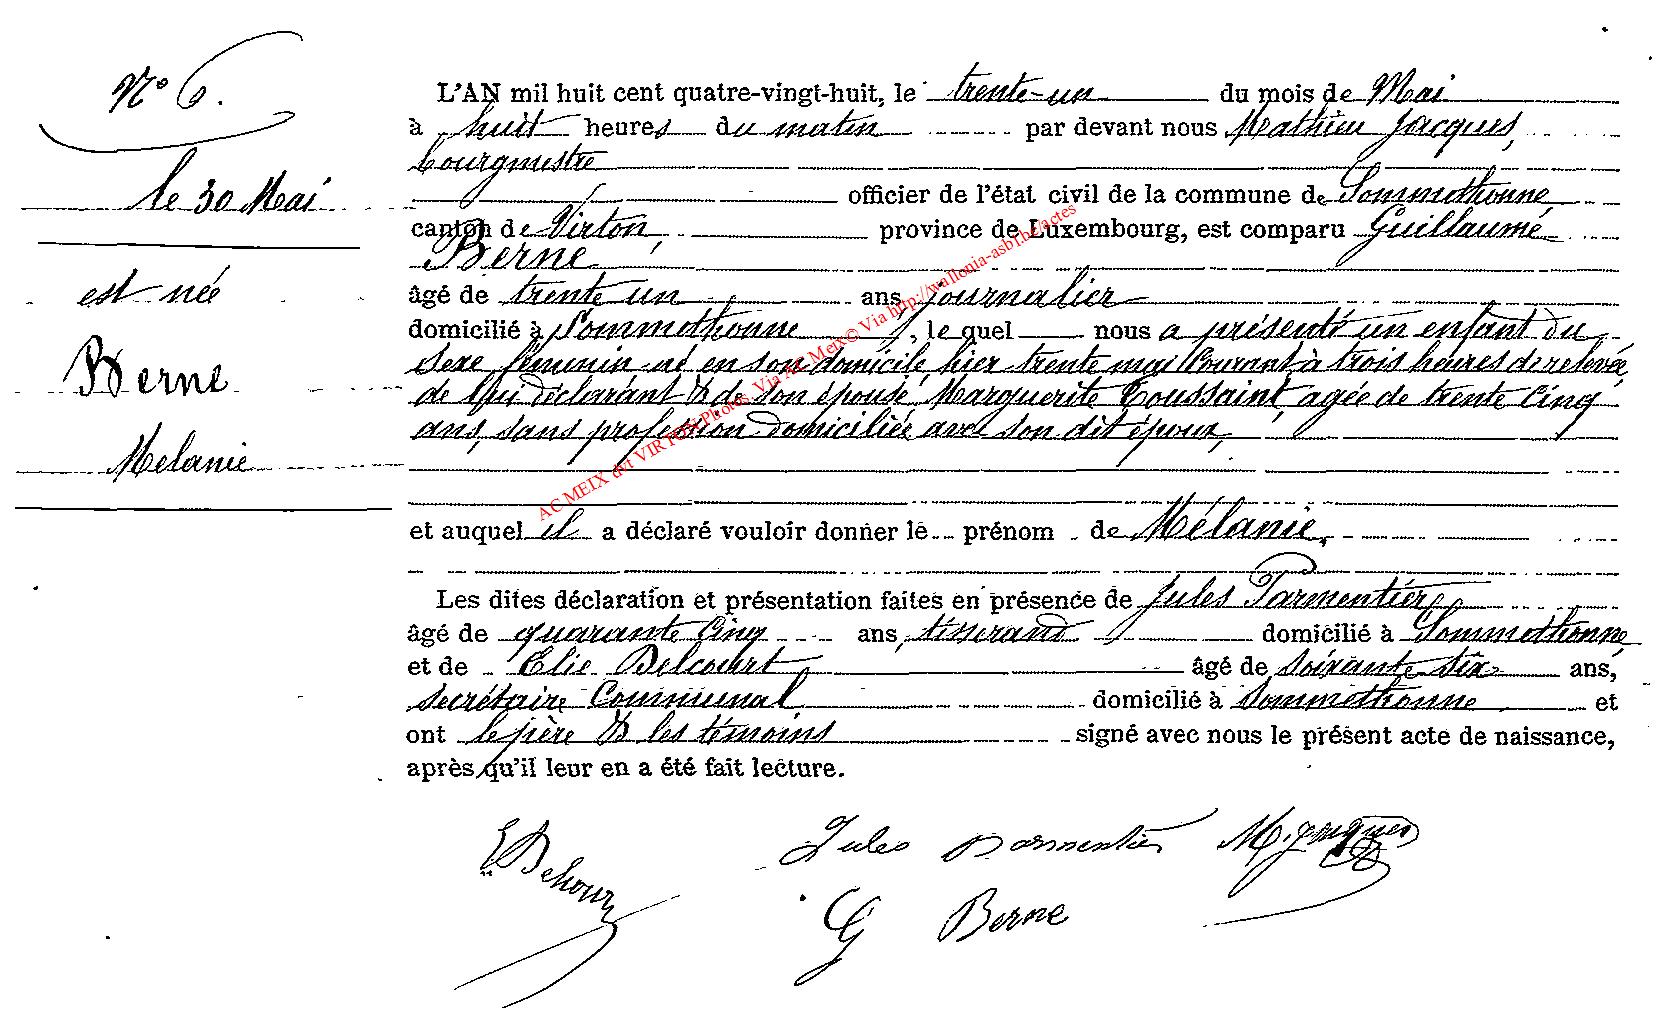 N° 6.
le 30 Mai
est née
Berne
Melanie
L'AN mil huit cent quatre-vingt-huit, le trente-un du mois de Mai
à huit heures du matin par devant nous Mathieu Jacques,
bourgmestre
officier de l'état civil de la commune de Sommethonne
canton de Virton, province de Luxembourg, est comparu Guillaume
Berne
âgé de trente un ans, journalier
domicilié à Sommethonne, le quel nous a présenté un enfant du
sexe féminin né en son domicile, hier trente mai courant à trois heures de relevée,
de lui déclarant & de son épouse Marguerite Toussaint, agée de trente cinq
ans, sans profession domiciliée avec son dit époux,
et auquel il a déclaré vouloir donner le prénom de Mélanie,
Les dites déclaration et présentation faites en présence de Jules Parmentier
âgé de quarante cinq ans, tisserand domicilié à Sommethonne,
et de Elie Delcourt âgé de soixante six ans,
secrétaire communal domicilié à Sommethonne et
ont le père & les témoins signé avec nous le présent acte de naissance,
après qu'il leur en a été fait lecture.
Jules Parmentier M. Jacques
G Berne
AC MEIX dvt VIRTON Photos Via AC Meix © Via http://wallonia-asbl.be/actes